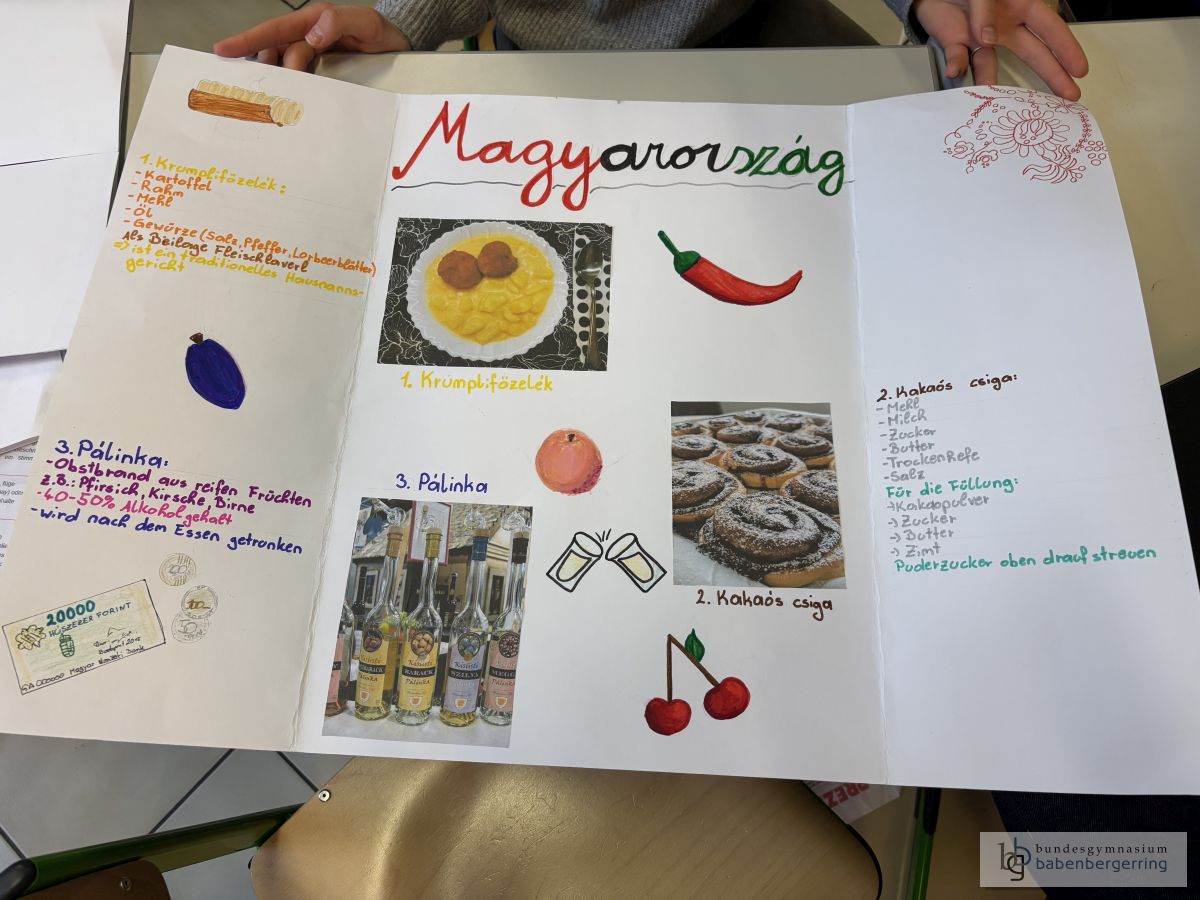 Magyarország
1. Krumpliföz̋elék:
- Kartoffel
- Rahm
- Mehl
- Öl
- Gewürze (Salz, Pfeffer, Lorbeerblätter)
Als Beilage Fleischlaverl
=> ist ein traditionelles Hausmanns-
gericht
3. Pálinka:
- Obstbrand aus reifen Früchten
z.B.: Pfirsich, Kirsche, Birne
- 40-50% Alkoholgehalt
- wird nach dem Essen getrunken
20000
HÚSZEZER FORINT
Budapest 2015
Magyar Nemzeti Bank
SA 000000
1. Krumplifözelék
3. Pálinka
Kisüsti
BARACK
Pálinka
Kisüsti
SZILVA
Pálinka
2. Kakaós csiga
2. Kakaós csiga:
- Mehl
- Milch
- Zucker
- Butter
- Trockenhefe
- Salz
Für die Füllung:
-> Kakaopulver
-> Zucker
-> Butter
-> Zimt
Puderzucker oben drauf streuen
bundesgymnasium
babenbergerring